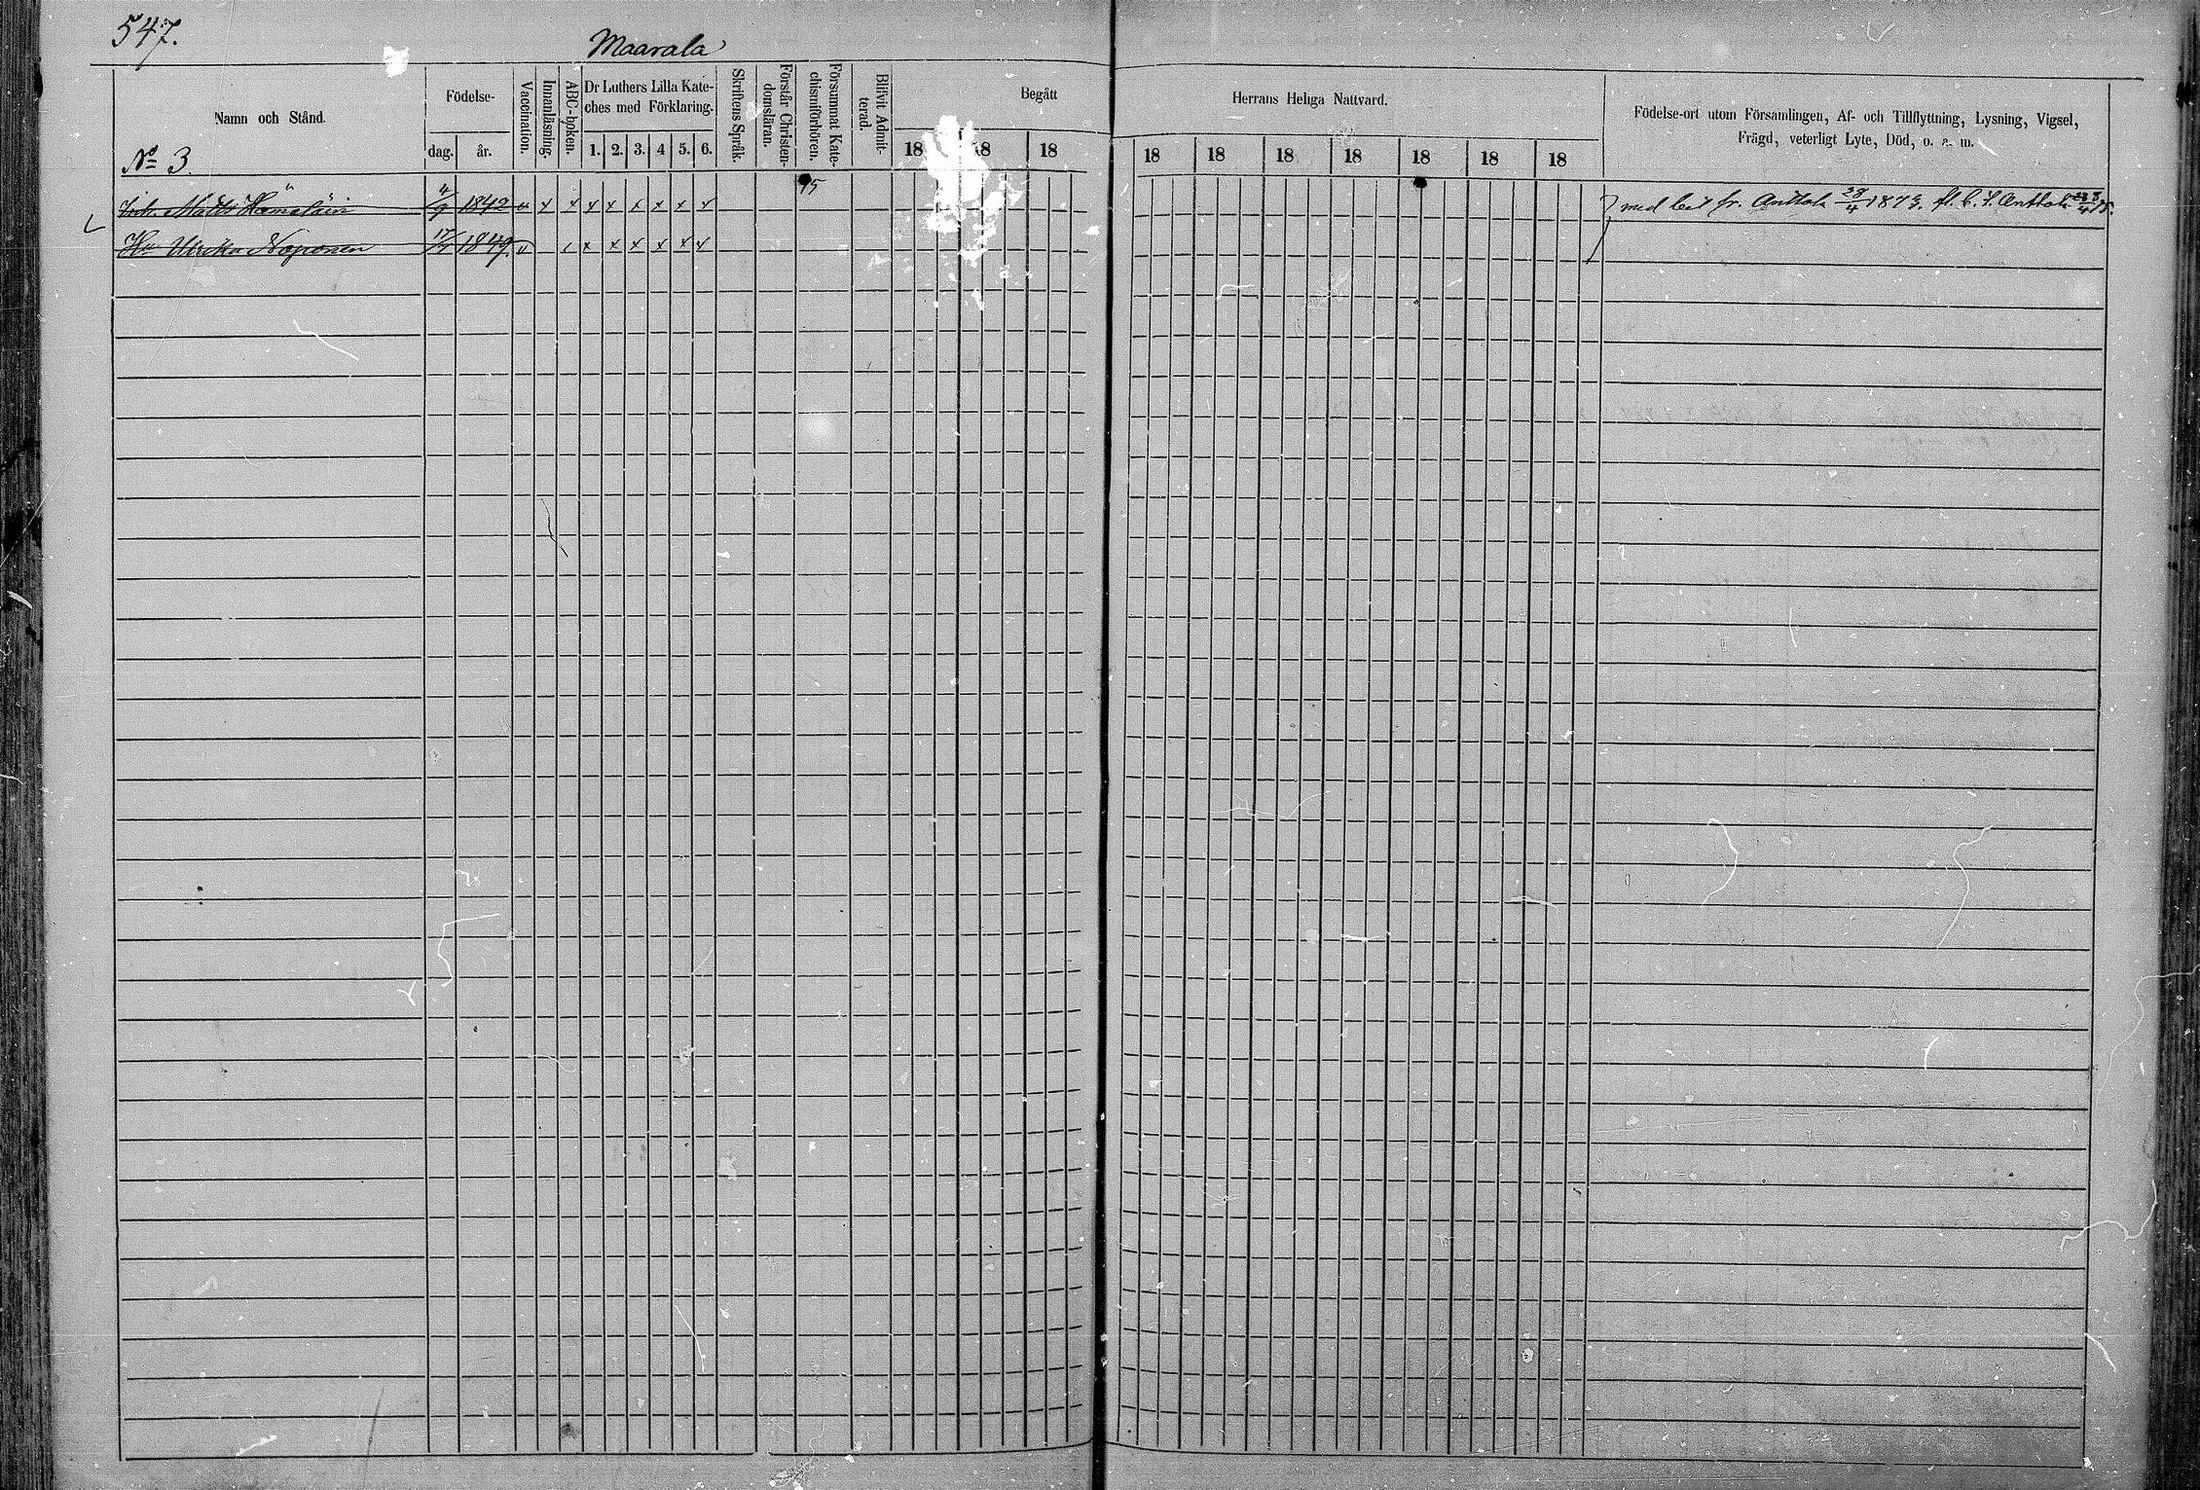 547.
Maavala
Namn och Stånd.
Födelse-
dag.
år.
Vaccination.
Innanläsning.
ABC-boken.
Dr Luthers Lilla Kate-
ches med Förklaring.
1. 2. 3. 4 5. 6.
Skriftens Språk.
Förstår Christen-
domsläran.
Försummat Kate-
chismiförhören.
Blifvit Admit-
terad.
Begått
18 18 18
Herrans Heliga Nattvard.
18 18 18 18 18 18 18
Födelse-ort utom Församlingen, Af- och Tillflyttning, Lysning, Vigsel,
Frägd, veterligt Lyte, Död, o. a. m.
No 3.
Matts Hämäläin 4/9 1842 v x x x x x x x x 75 med bet fr. Anttola 1873. fl. b. t. Anttola
Hu Ulrika Noponen 1849. v x x x x x x